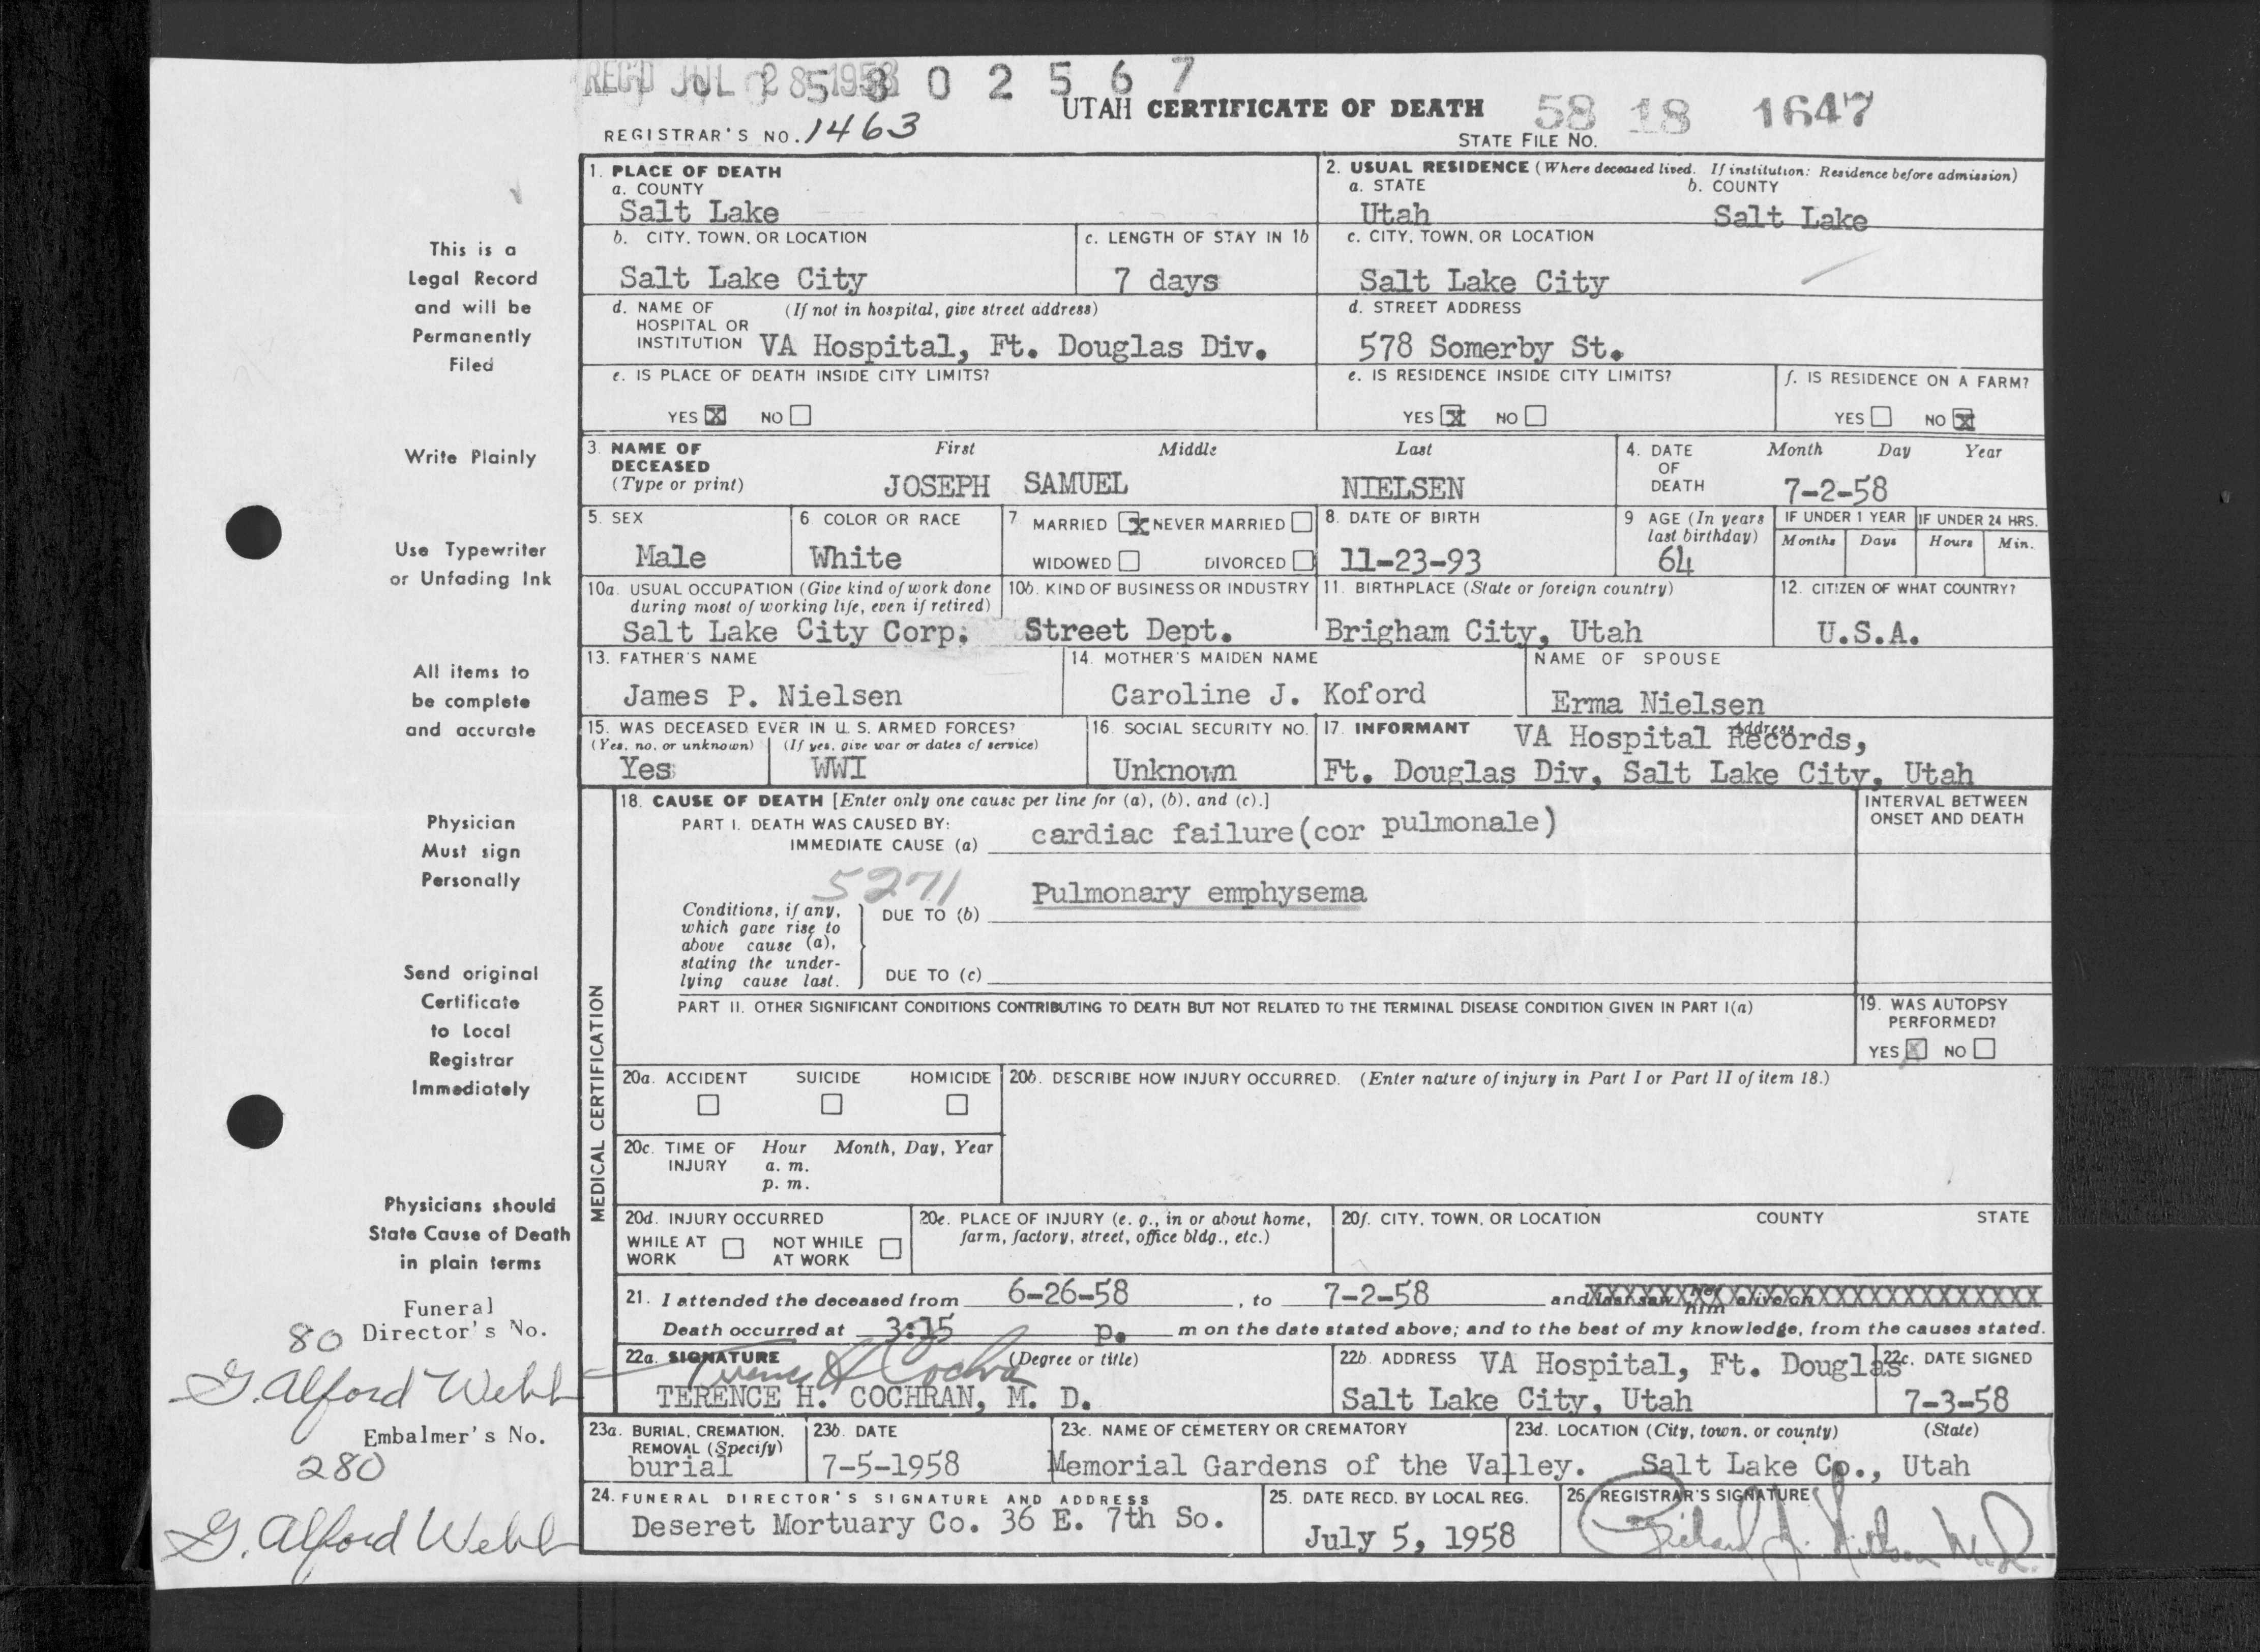 REC'D JUL 28 1958
5 8 0 2 5 6 7
UTAH CERTIFICATE OF DEATH
58 18 1647
REGISTRAR'S NO. 1463
STATE FILE NO.
1. PLACE OF DEATH
a. COUNTY
Salt Lake
2. USUAL RESIDENCE (Where deceased lived. If institution: Residence before admission)
a. STATE b. COUNTY
Utah Salt Lake
b. CITY, TOWN, OR LOCATION
Salt Lake City
c. LENGTH OF STAY IN 1b
7 days
c. CITY, TOWN, OR LOCATION
Salt Lake City
d. NAME OF (If not in hospital, give street address)
HOSPITAL OR
INSTITUTION VA Hospital, Ft. Douglas Div.
d. STREET ADDRESS
578 Somerby St.
e. IS PLACE OF DEATH INSIDE CITY LIMITS?
YES X NO
e. IS RESIDENCE INSIDE CITY LIMITS?
YES X NO
f. IS RESIDENCE ON A FARM?
YES NO X
3. NAME OF First Middle Last
DECEASED
(Type or print) JOSEPH SAMUEL NIELSEN
4. DATE Month Day Year
OF
DEATH 7-2-58
5. SEX
Male
6 COLOR OR RACE
White
7 MARRIED X NEVER MARRIED
WIDOWED DIVORCED
8. DATE OF BIRTH
11-23-93
9 AGE (In years
last birthday)
64
IF UNDER 1 YEAR
Months Days
IF UNDER 24 HRS.
Hours Min.
10a. USUAL OCCUPATION (Give kind of work done
during most of working life, even if retired)
Salt Lake City Corp.
10b. KIND OF BUSINESS OR INDUSTRY
Street Dept.
11. BIRTHPLACE (State or foreign country)
Brigham City, Utah
12. CITIZEN OF WHAT COUNTRY?
U.S.A.
13. FATHER'S NAME
James P. Nielsen
14. MOTHER'S MAIDEN NAME
Caroline J. Koford
NAME OF SPOUSE
Erma Nielsen
15. WAS DECEASED EVER IN U. S. ARMED FORCES?
(Yes, no, or unknown) (If yes, give war or dates of service)
Yes WWI
16. SOCIAL SECURITY NO.
Unknown
17. INFORMANT Address
VA Hospital Records,
Ft. Douglas Div, Salt Lake City, Utah
MEDICAL CERTIFICATION
18. CAUSE OF DEATH [Enter only one cause per line for (a), (b), and (c).]
PART I. DEATH WAS CAUSED BY:
IMMEDIATE CAUSE (a) cardiac failure(cor pulmonale)
INTERVAL BETWEEN
ONSET AND DEATH
5271
Conditions, if any,
which gave rise to
above cause (a),
stating the under-
lying cause last.
DUE TO (b) Pulmonary emphysema
DUE TO (c)
PART II. OTHER SIGNIFICANT CONDITIONS CONTRIBUTING TO DEATH BUT NOT RELATED TO THE TERMINAL DISEASE CONDITION GIVEN IN PART I(a)
19. WAS AUTOPSY
PERFORMED?
YES X NO
20a. ACCIDENT SUICIDE HOMICIDE
20b. DESCRIBE HOW INJURY OCCURRED. (Enter nature of injury in Part I or Part II of item 18.)
20c. TIME OF Hour Month, Day, Year
INJURY a. m.
p. m.
20d. INJURY OCCURRED
WHILE AT NOT WHILE
WORK AT WORK
20e. PLACE OF INJURY (e. g., in or about home,
farm, factory, street, office bldg., etc.)
20f. CITY, TOWN, OR LOCATION COUNTY STATE
21. I attended the deceased from 6-26-58, to 7-2-58 and last saw him alive on
Death occurred at 3:15 p. m on the date stated above; and to the best of my knowledge, from the causes stated.
22a. SIGNATURE (Degree or title)
Terence H Cochran
TERENCE H. COCHRAN, M. D.
22b. ADDRESS VA Hospital, Ft. Douglas
Salt Lake City, Utah
22c. DATE SIGNED
7-3-58
23a. BURIAL, CREMATION,
REMOVAL (Specify)
burial
23b. DATE
7-5-1958
23c. NAME OF CEMETERY OR CREMATORY
Memorial Gardens of the Valley.
23d. LOCATION (City, town, or county) (State)
Salt Lake Co., Utah
24. FUNERAL DIRECTOR'S SIGNATURE AND ADDRESS
Deseret Mortuary Co. 36 E. 7th So.
25. DATE RECD. BY LOCAL REG.
July 5, 1958
26. REGISTRAR'S SIGNATURE
Richard
This is a
Legal Record
and will be
Permanently
Filed
Write Plainly
Use Typewriter
or Unfading Ink
All items to
be complete
and accurate
Physician
Must sign
Personally
Send original
Certificate
to Local
Registrar
Immediately
Physicians should
State Cause of Death
in plain terms
Funeral
Director's No.
80
G. Alford Webb
Embalmer's No.
280
G. Alford Webb